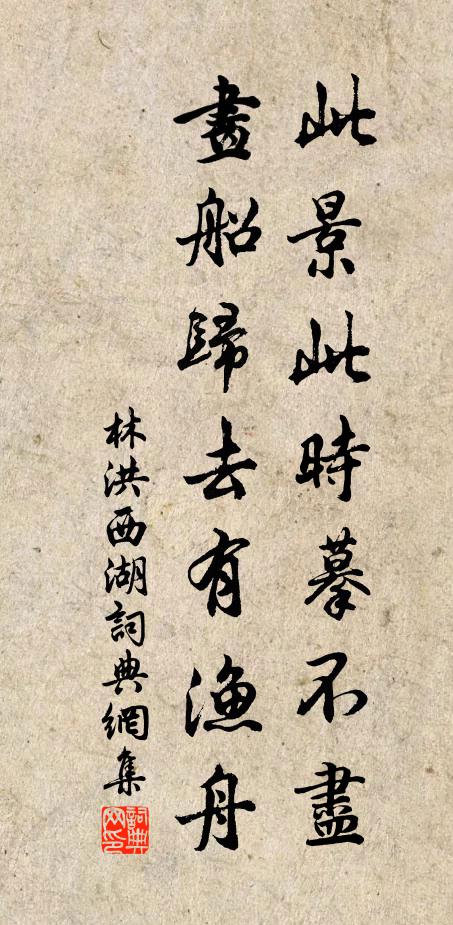 此景此時摹不盡
畫船歸去有漁舟
林洪西湖詞典網集
詞典網印